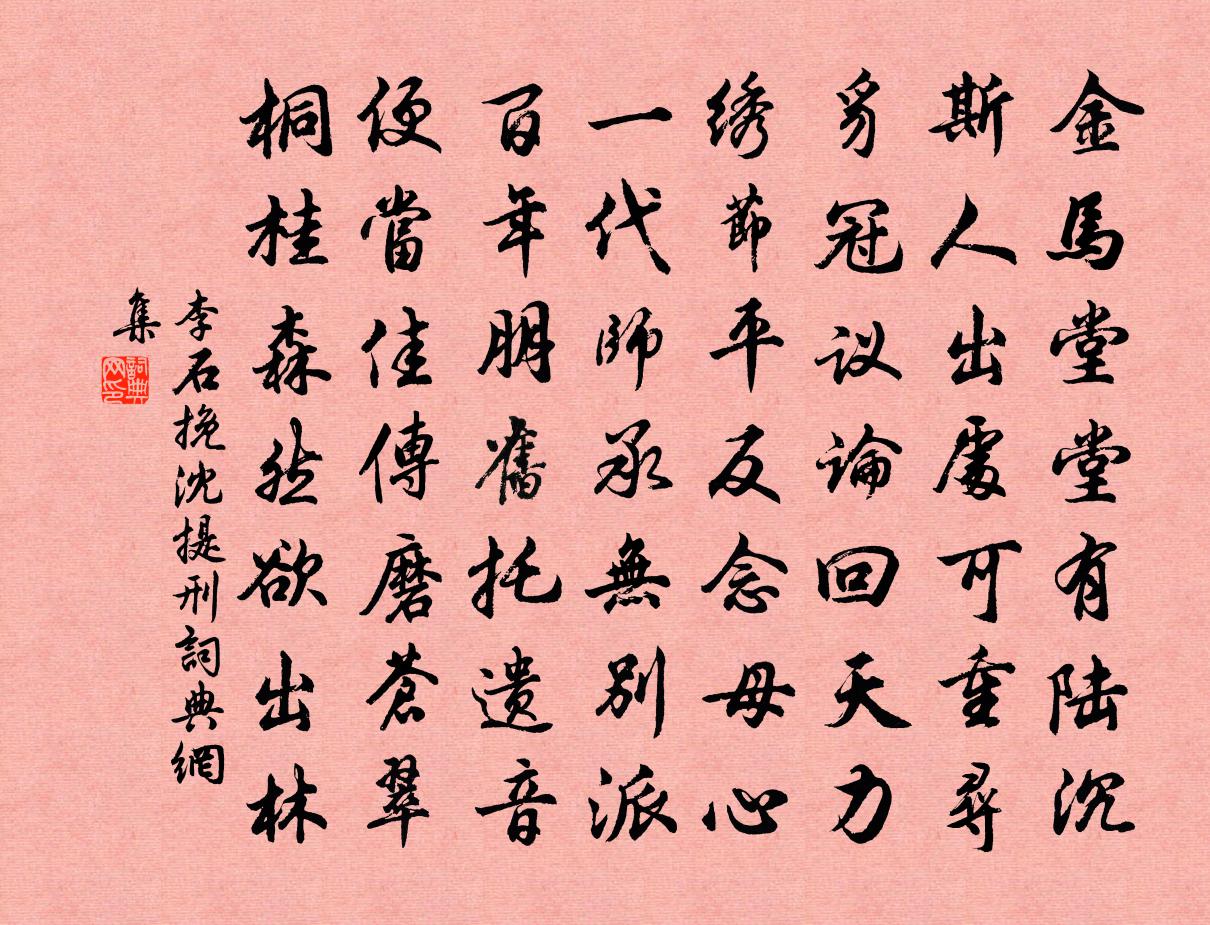 金馬堂堂有陆沉
斯人出處可重尋
豸冠议論回天力
绣節平反念母心
一代師承無别派
百年朋舊托遗音
便當佳傳磨蒼翠
桐桂森然欲出林
李石挽沈提刑詞典網
集
詞典
网印